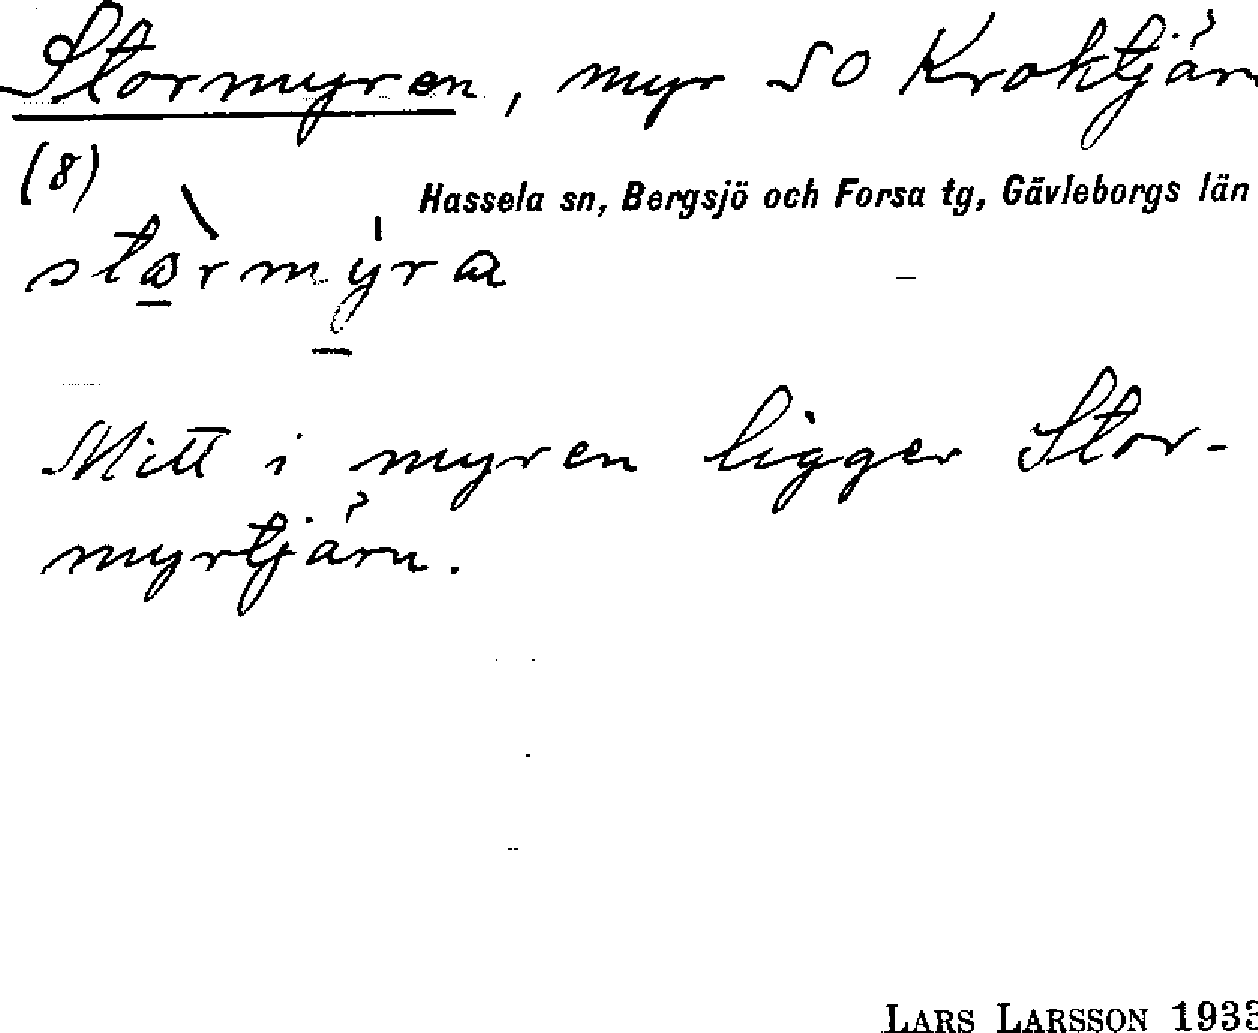 Stormyren, myr SO Kroktjärn
(8)
Hassela sn, Bergsjö och Forsa tg, Gävleborgs län
stormyra
Mitt i myren ligger Stor-
myrtjärn.
LARS LARSSON 1933